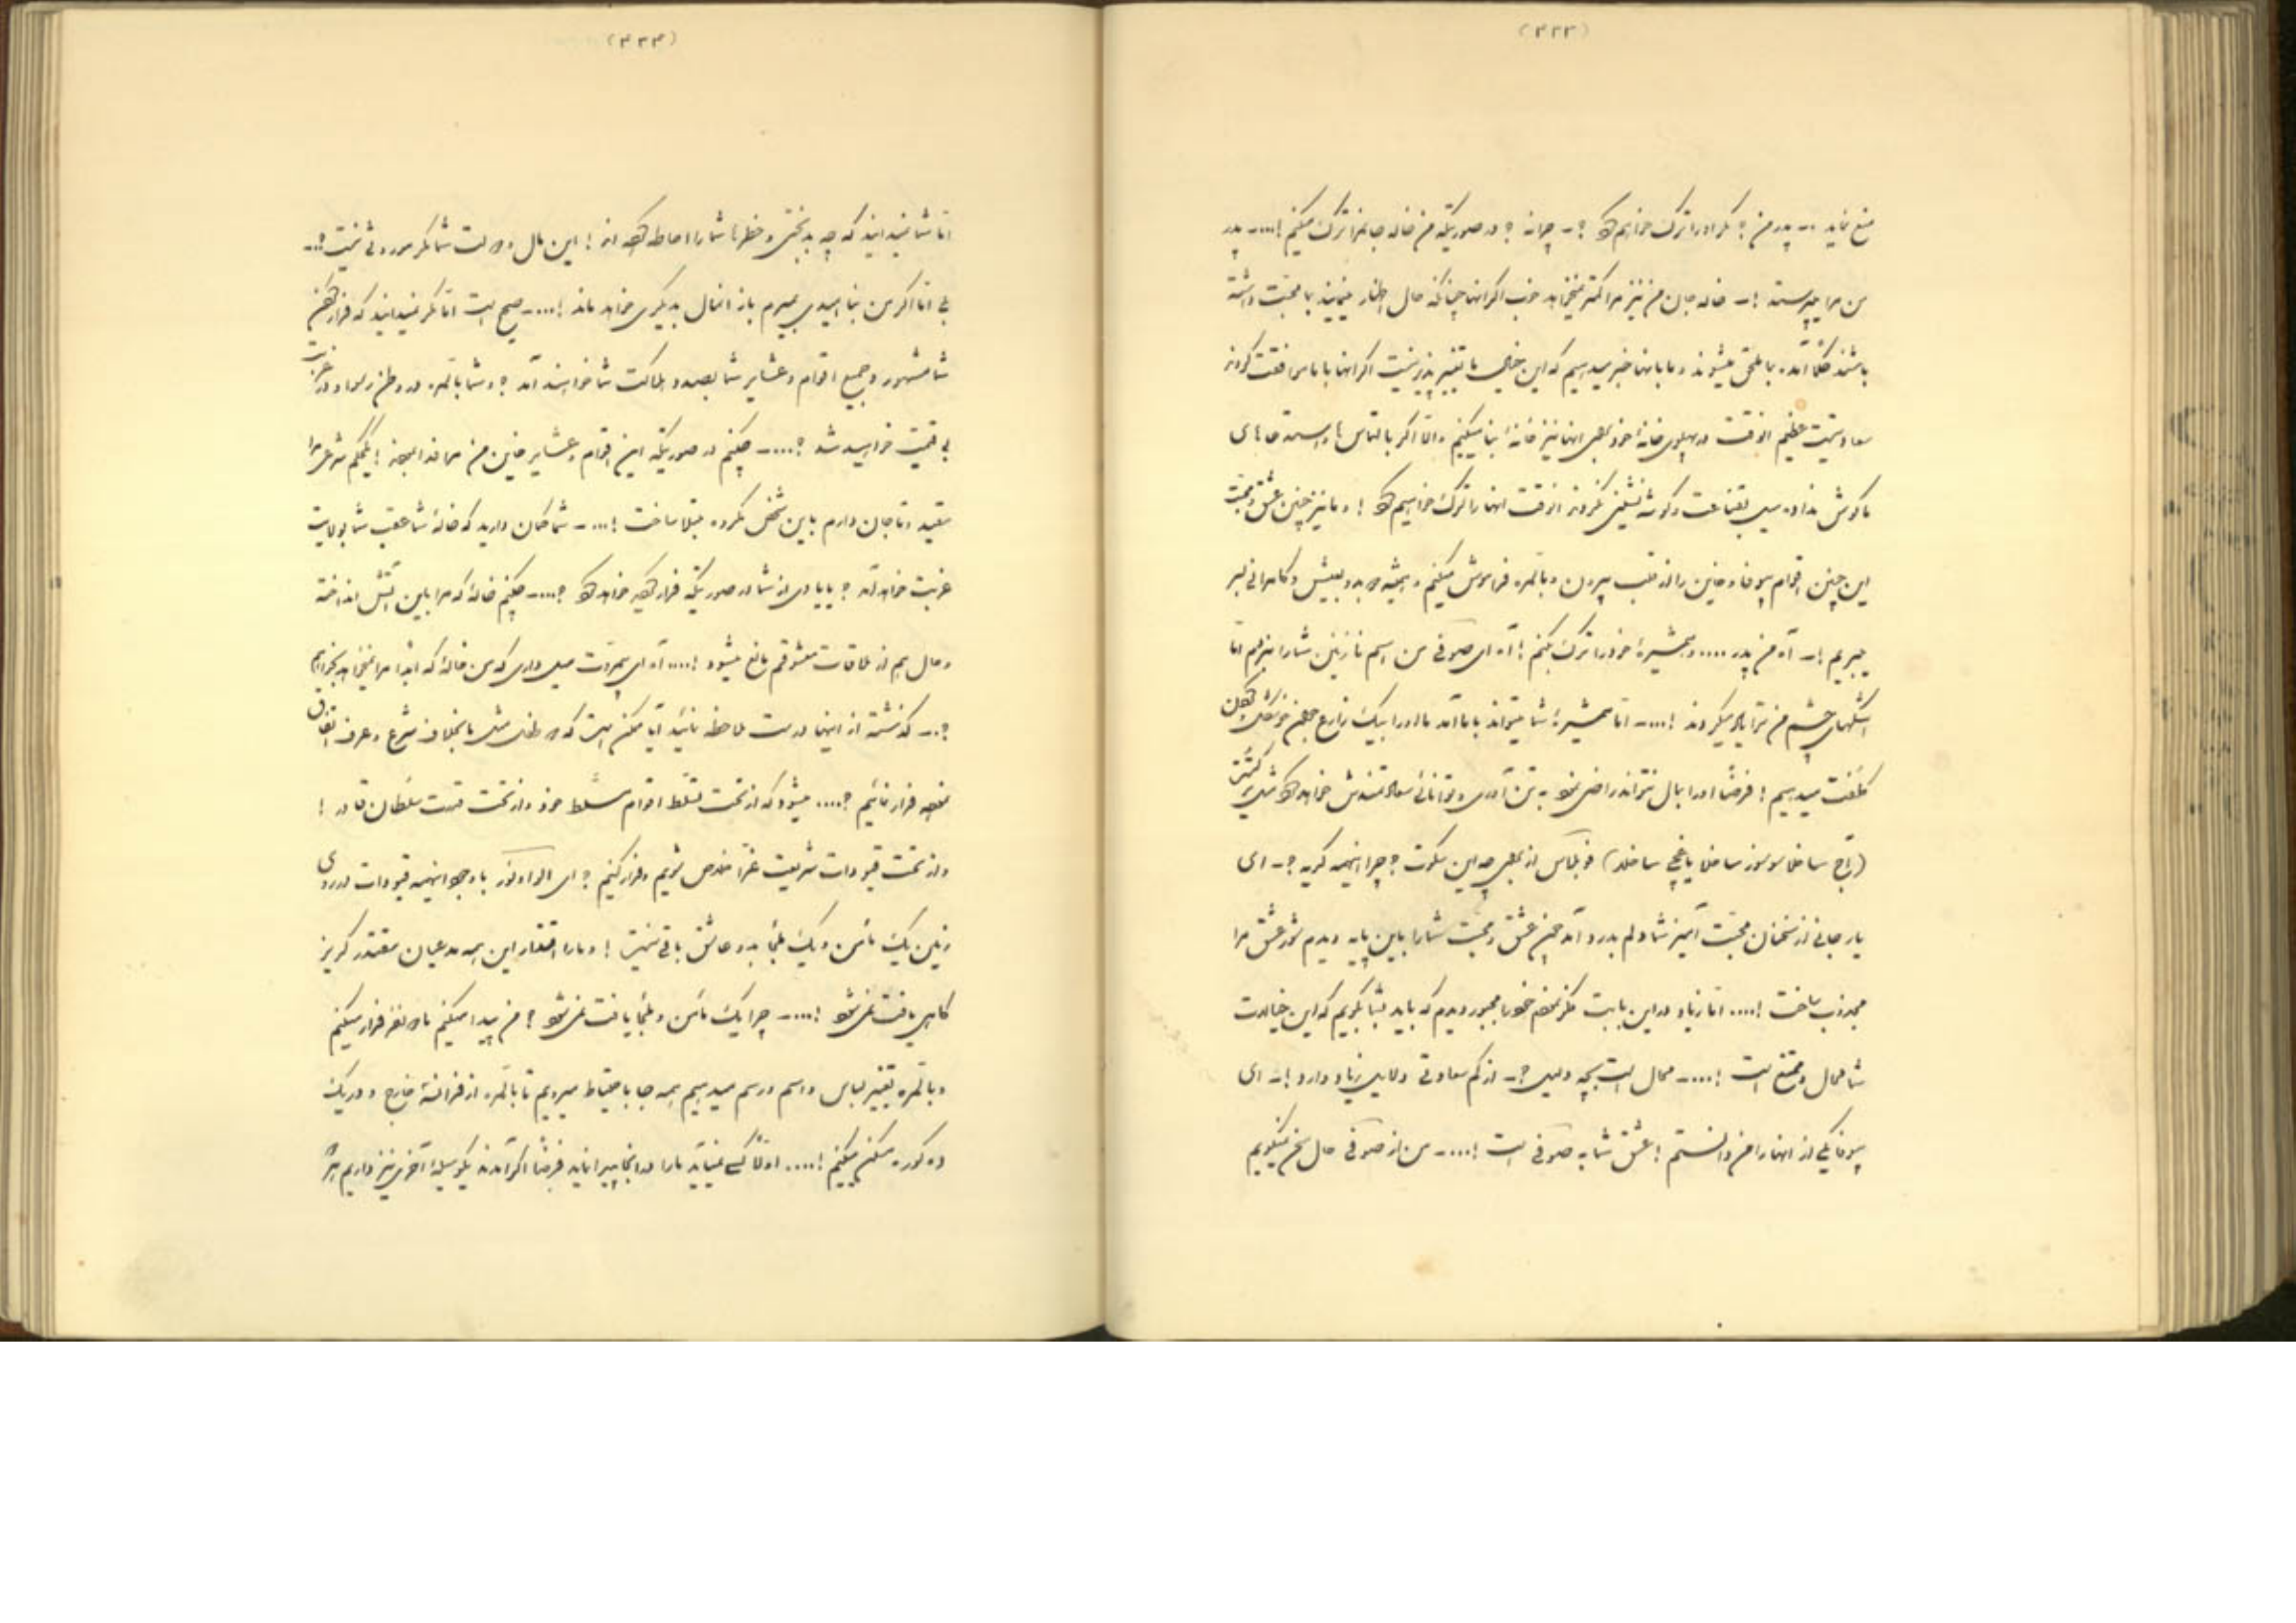 (۳۳۳)
منع نماید -- پدر من ؟ مگر او را ترک خواهم کرد ؟ - چرا نه ؟ در صورتیکه من خاله جانمرا ترک میکنم !.... - پدر
من مرا میپرستد !- خاله جان من نیز مرا کمتر نمیخواهد خوب اگر انها چنانکه حال اظهار مینمایند بما محبت داشته
باشند کلاً آمده بما ملحق میشوند و ما بانها خبر میدهیم که این خیال ما تغییر پذیر نیست اگر انها با ما موافقت کردند
سعادتیست عظیم انوقت در پهلوی خانهٔ خود برای انها نیز خانهٔ بنا میکنیم والا اگر بالتماس ها و استرحامهای
ما گوش نداده میل بقناعت و گوشه نشینی نکردند انوقت انها را ترک خواهیم کرد ! و ما نیز چنین عشق و محبت
این چنین اقوام بیوفا و خاین را از قلب بیرون و بالمره فراموش میکنیم و همیشه بعیش و کامرانی بسر
میبریم !- آه من پدر .... و همشیرهٔ خود را ترک بکنم ! آه ای صوفی من اسم نازنین شما را میبرم اما
اشکهای چشم من ترا یاد میکردند !.... - اما همشیرهٔ شما میتواند با ما آمد ما او را بیک زارع
کلفت میدهیم ! فرضاً او را بمال نتواند راضی نمود به تن آوری و توانائی سعادتمندش خواهد کرد مثل
(تاج ساخلا موموز ساخلا یاغچی ساخلار) فوبلاس از برای چه این سکوت ؟ چرا اینهمه گریه ؟ - ای
یار جانی از سخنان محبت آمیز شما دلم بدرد آمد چون عشق و محبت شما را باین پایه دیدم شور عشق مرا
مجذوب ساخت !.... اما زیاد در این بابت فکر نکرده خود را مجبور دیدم که باید بشما بگویم که این خیالات
شما محال و ممتنع است !.... - محال است بچه دلیل ؟ - از کم سعادتی دلایل زیاد دارد !- ای
بیوفا یکی از انها را من دانستم ! عشق شما به صوفی است !.... - من از صوفی حال سخن نمیگویم
(۳۳۴)
اما شما نمیدانید که چه بدبختی و خطرها شما را احاطه کرده اند ! این مال و دولت شما مگر موروثی نیست ؟ --
بلی اما اگر من بنا امیدی بمیرم باز انمال بدیگری خواهد ماند !.... - صحیح است اما مگر نمیدانید که فرار کردن
شما مشهور و جمیع اقوام و عشایر شما بصدد هلاکت شما خواهند آمد ؟ و شما بالمره در وطن رسوا و در غربت
بی قیمت خواهید شد ؟.... - چکنم در صورتیکه این اقوام و عشایر خاین من مرا بحکم شرعی مرا
مقید و تا جان دارم باین شخص مکروه مبتلا ساخت !.... - شما گمان دارید که خالهٔ شما عقب شما بولایت
غربت خواهد آمد ؟ یا یادی از شما در صورتیکه فرار کردید خواهد کرد ؟.... - چکنم خالهٔ که مرا باین آتش انداخته
و حال هم از ملاقات معشوقم مانع میشود !.... آه ای بیمروت میل داری که من خالهٔ که ابداً مرا نمیخواهد بخواهم
؟ -- گذشته از اینها درست ملاحظه نمائید آیا ممکن است که دو طفل مثل ما بخلاف شرع و عرف اتفاق
نموده فرار نمائیم ؟.... میشود که از تحت تسلط اقوام مسلط خود و از تحت قدرت سلطان قادر !
و از تحت قیودات شریعت غرّا خلاص شویم و فرار کنیم ؟ ای الواه نور باوجود اینهمه قیودات در روی
زمین یک مأمن و یک ملجأ بدو عاشق باقی نیست ! و ما را اقتدار این همه مدعیان مقتدر گریز
گاهی یافت نمی شود !.... - چرا یک مأمن و ملجأ یافت نمی شود ؟ من پیدا میکنم ما دو نفر فرار میکنیم
و بالمره تغییر لباس و اسم و رسم میدهیم همه جا با احتیاط میرویم تا بالمره از فرانسه خارج و در یک
ده کوره مسکن میکنیم !.... اولاً کسی نمیآید ما را در انجا پیدا نماید فرضاً اگر آمدند یکوسیلهٔ آخری نیز داریم